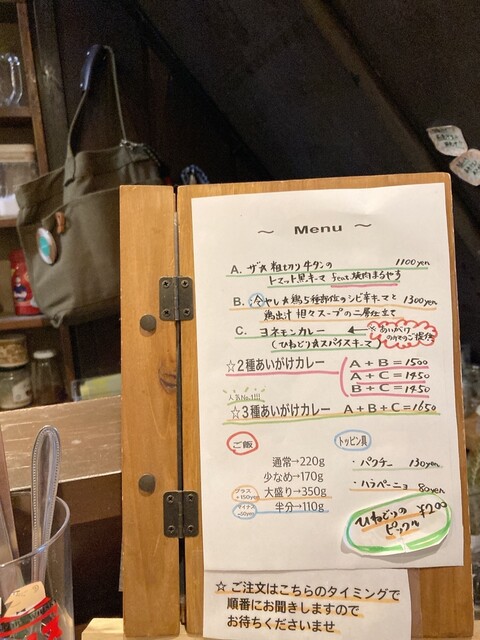 ～ Menu ～
A. ザ☆粗切り牛タンの 1100yen
トマット黒キーマ feat.焼肉まるやす
B. 冷やし☆鶏5種部位のシビ辛キーマと 1300yen
鶏出汁 担々スープの二層仕立て
C. ヨネモンカレー ← ※あいがけのみでのご提供
(ひねどり☆スパイスキーマ)
☆2種あいがけカレー
A+B=1500
A+C=1450
B+C=1450
人気No.1!!!
☆3種あいがけカレー A+B+C=1650
ご飯
通常→220g
少なめ→170g
プラス+150yen 大盛り→350g
マイナス-50yen 半分→110g
トッピン具
・パクチー 130yen
・ハラペーニョ 80yen
ひねどりの ¥200
ピックル
☆ご注文はこちらのタイミングで
順番にお聞きしますので
お待ちくださいませ